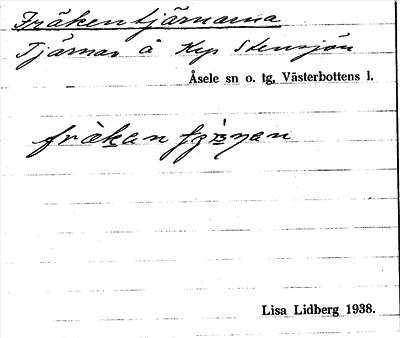 Fräkentjärnarna
Tjärnar å Krp Stensjön
Åsele sn o. tg, Västerbottens l.
Lisa Lidberg 1938.